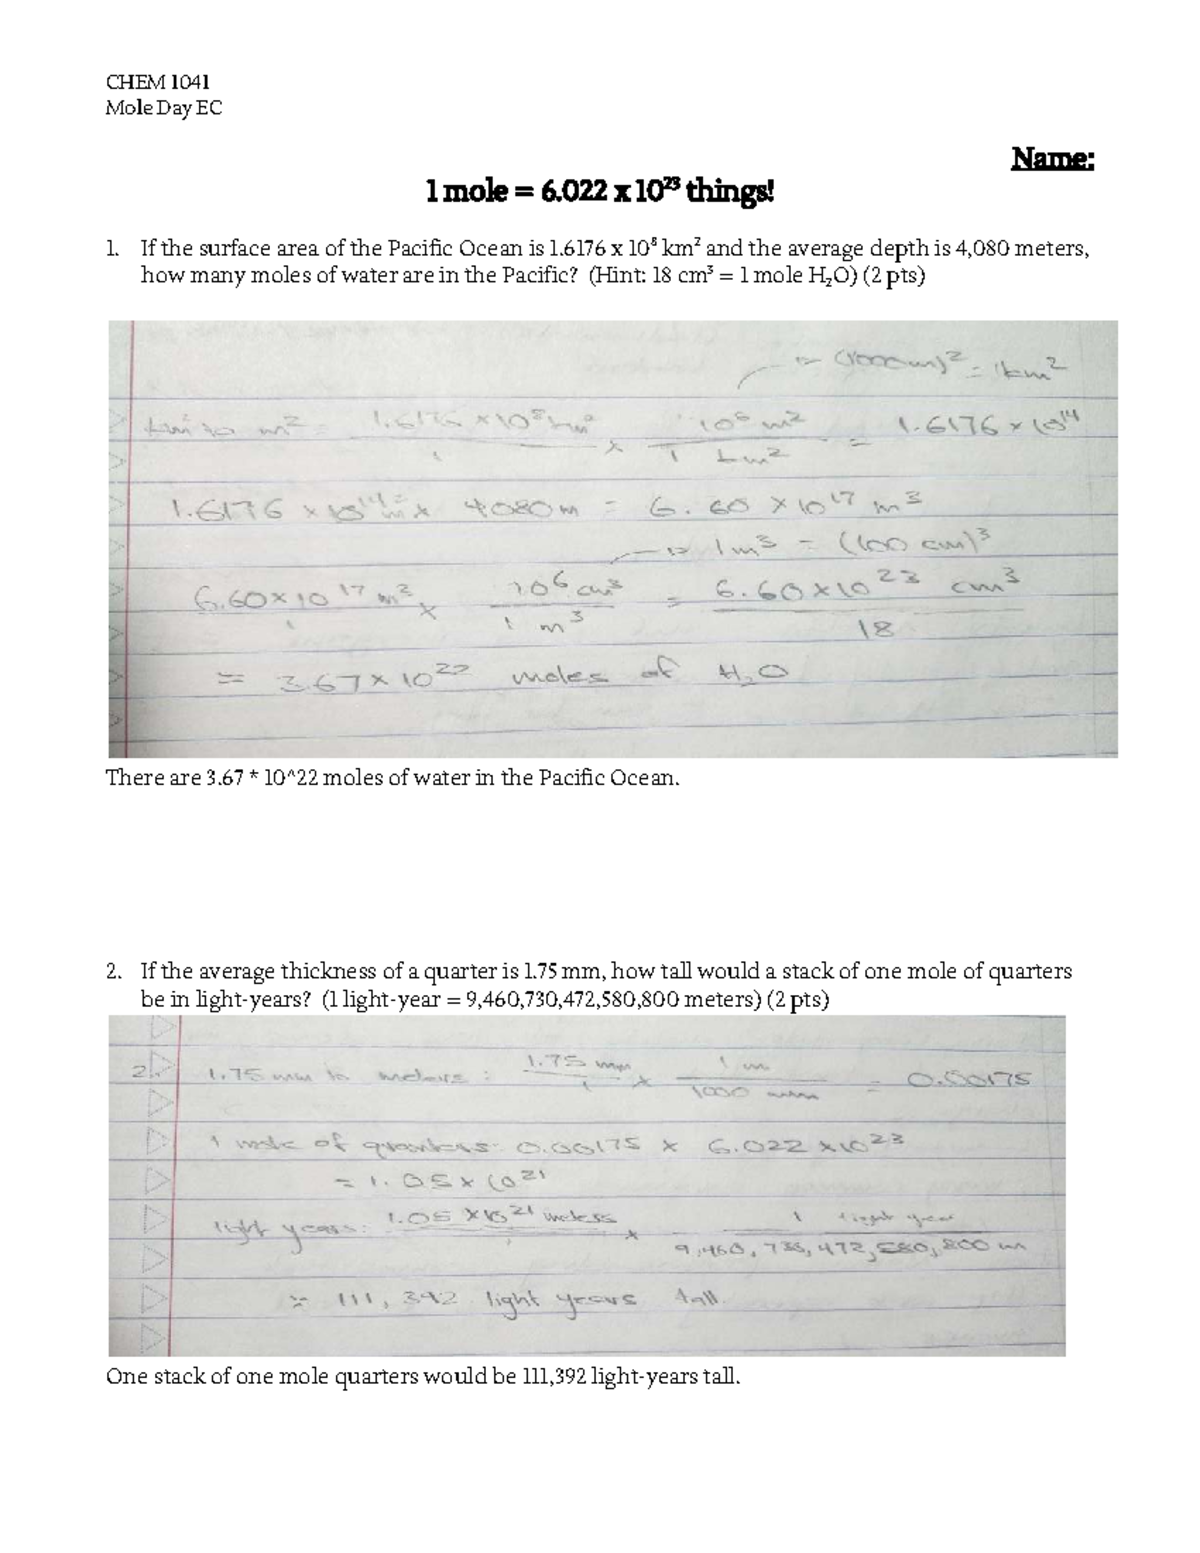 CHEM 1041
Mole Day EC
Name:
1 mole = 6.022 x 10²³ things!
1. If the surface area of the Pacific Ocean is 1.6176 x 10⁸ km² and the average depth is 4,080 meters,
how many moles of water are in the Pacific? (Hint: 18 cm³ = 1 mole H₂O) (2 pts)
(1000m)² = 1km²
km to m² = 1.6176 x 10⁸ km² / 1 x 10⁶ m² / 1 km² = 1.6176 x 10¹⁴
1.6176 x 10¹⁴ m² x 4080m = 6.60 x 10¹⁷ m³
1m³ = (100 cm)³
6.60 x 10¹⁷ m³ / 1 x 10⁶ cm³ / 1 m³ = 6.60 x 10²³ cm³ / 18
= 3.67 x 10²² moles of H₂O
There are 3.67 * 10^22 moles of water in the Pacific Ocean.
2. If the average thickness of a quarter is 1.75 mm, how tall would a stack of one mole of quarters
be in light-years? (1 light-year = 9,460,730,472,580,800 meters) (2 pts)
2. 1.75 mm to meters: 1.75 mm / 1 x 1 m / 1000 mm = 0.00175
1 mole of quarters: 0.00175 x 6.022 x 10²³
= 1.05 x 10²¹
light years: 1.05 x 10²¹ meters / 1 x 1 light year / 9,460,730,472,580,800 m
= 111,392 light years tall.
One stack of one mole quarters would be 111,392 light-years tall.